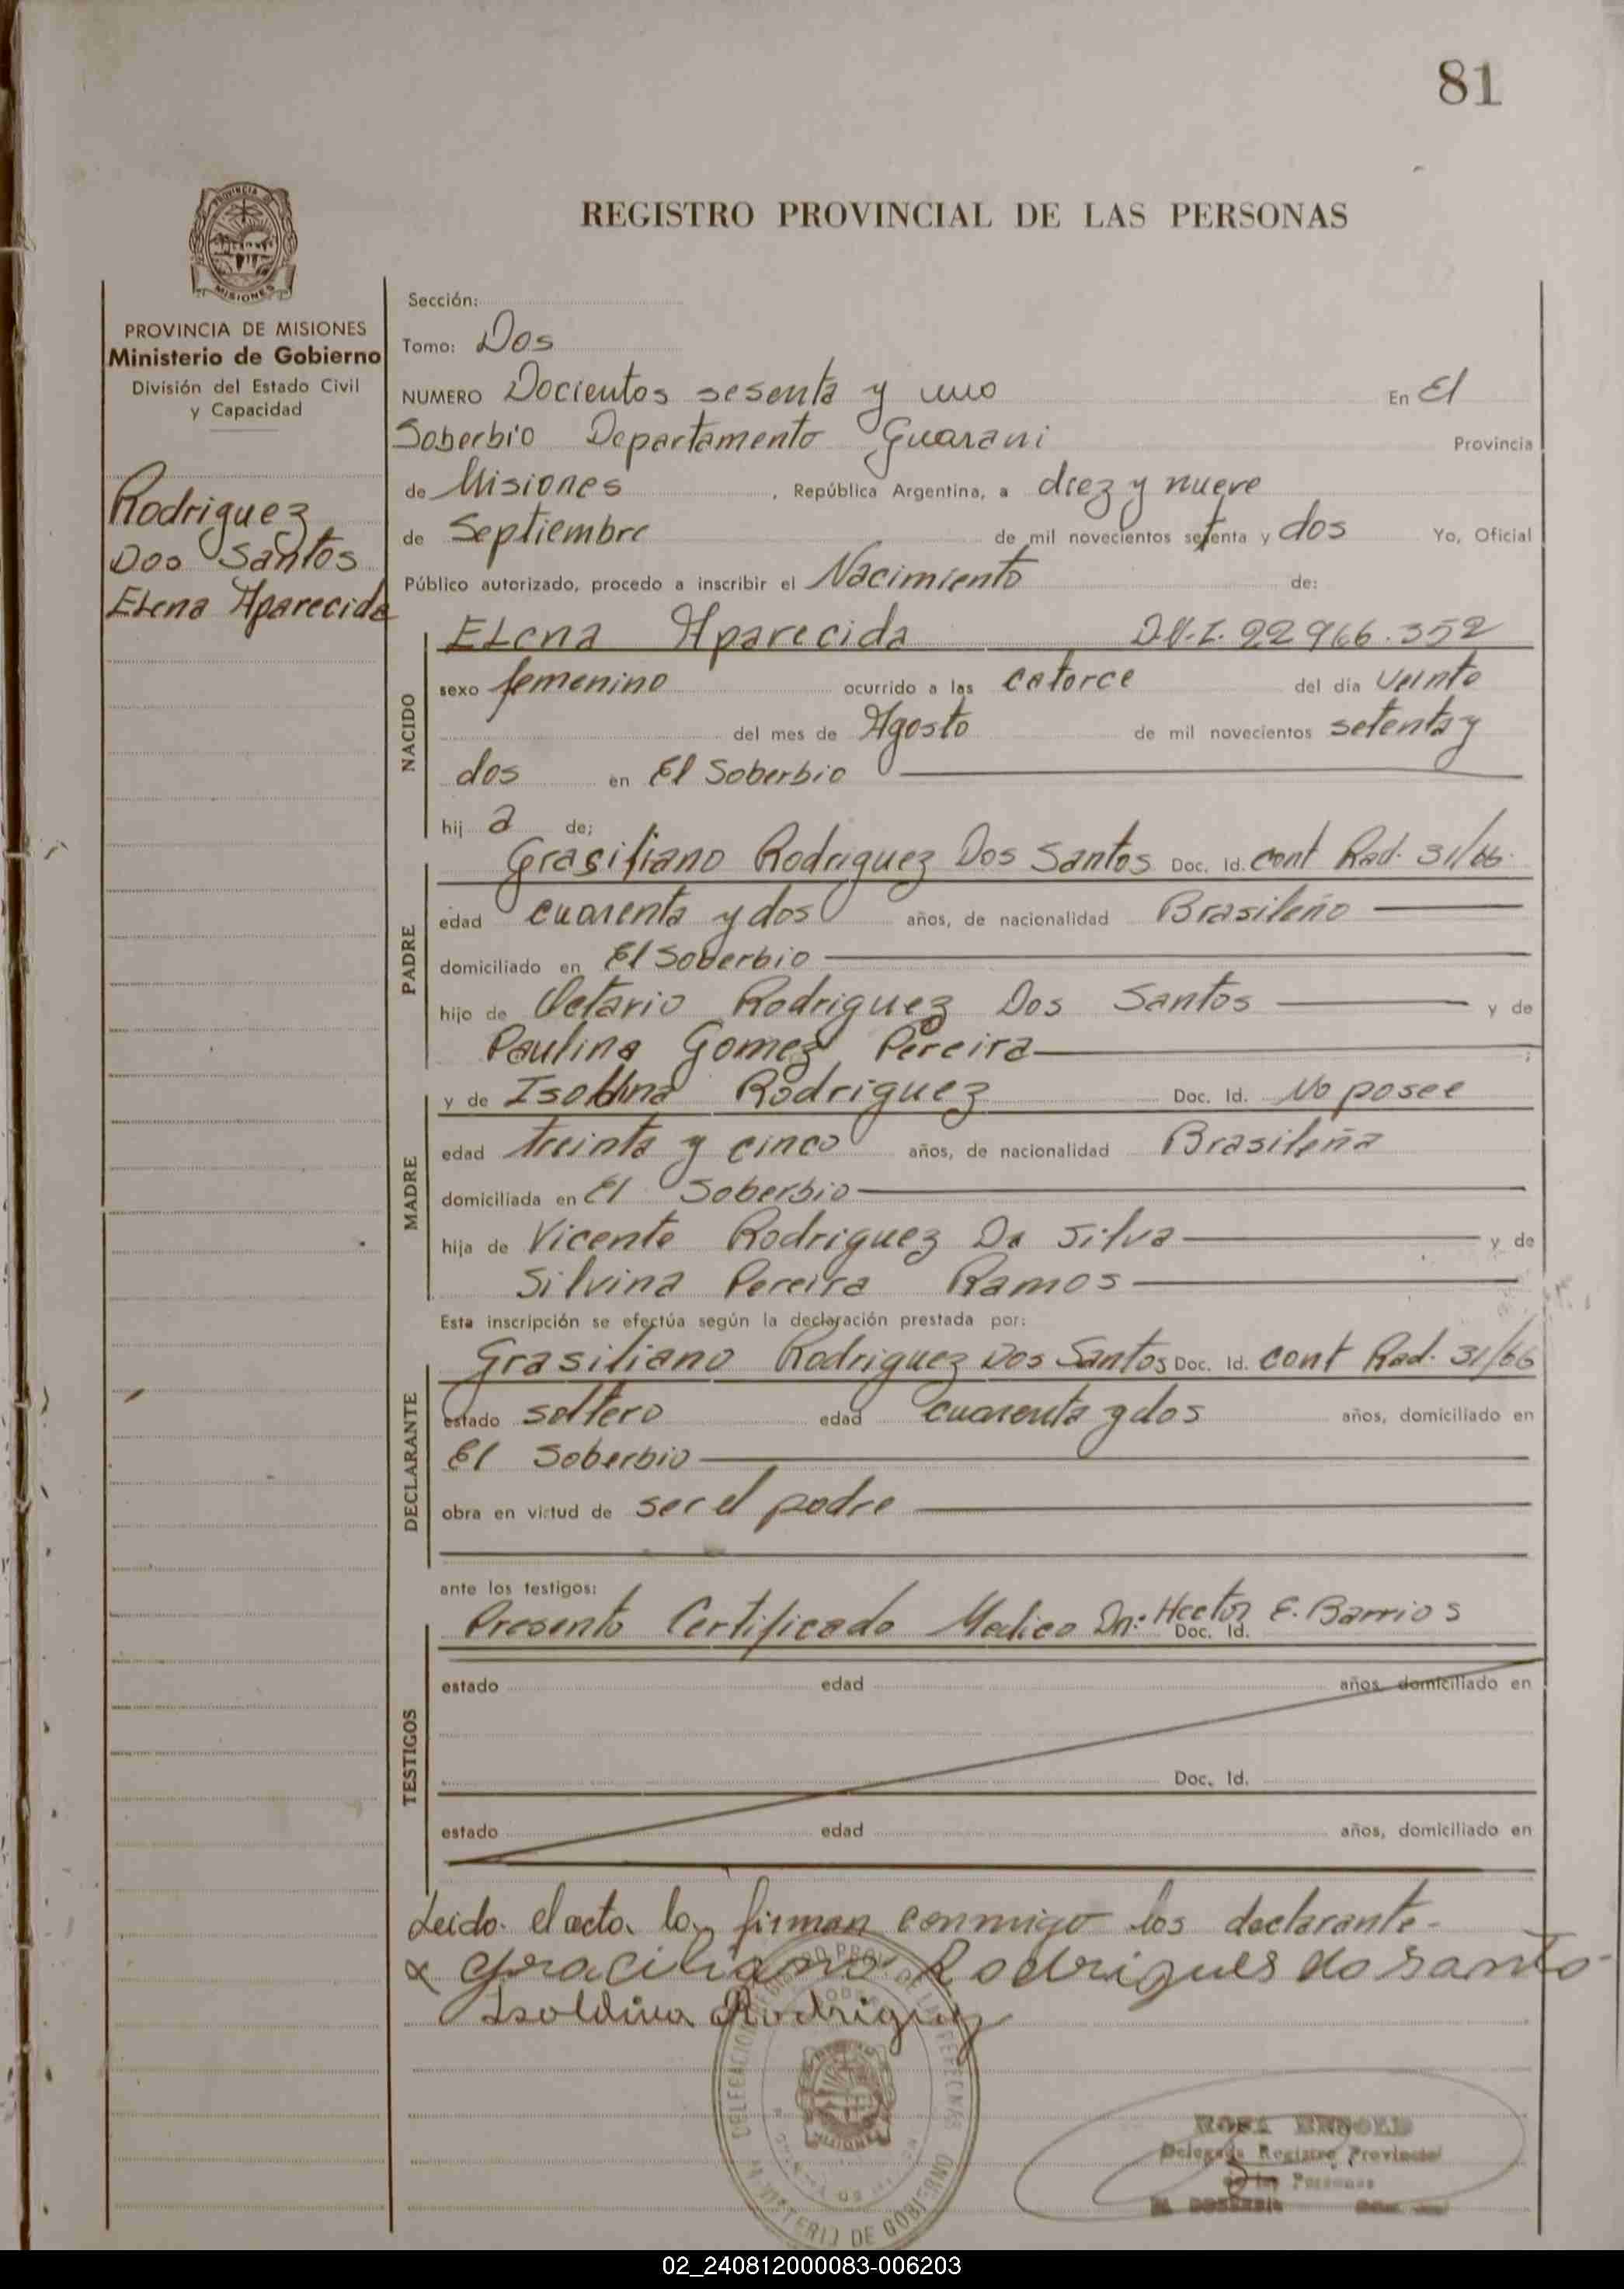 81
PROVINCIA DE
MISIONES
REGISTRO PROVINCIAL DE LAS PERSONAS
PROVINCIA DE MISIONES
Ministerio de Gobierno
División del Estado Civil
y Capacidad
Rodriguez
Dos Santos
Elena Aparecida
Sección:
Tomo: Dos
NUMERO Docientos sesenta y uno En El
Soberbio Departamento Guarani Provincia
de Misiones, República Argentina, a diez y nueve
de Septiembre de mil novecientos setenta y dos Yo, Oficial
Público autorizado, procedo a inscribir el Nacimiento de:
NACIDO
Elena Aparecida D.N.I. 22966.352
sexo femenino ocurrido a las catorce del día veinte
del mes de Agosto de mil novecientos setenta y
dos en El Soberbio
hij a de;
PADRE
Grasiliano Rodriguez Dos Santos Doc. Id. cont Rad. 31/66.
edad cuarenta y dos años, de nacionalidad Brasileño
domiciliado en El Soberbio
hijo de Rodriguez Dos Santos y de
Paulina Gomez Pereira
MADRE
y de Isoldina Rodriguez Doc. Id. No posee
edad treinta y cinco años, de nacionalidad Brasileña
domiciliada en El Soberbio
hija de Vicente Rodriguez Da Silva y de
Silvina Pereira Ramos
Esta inscripción se efectúa según la declaración prestada por:
DECLARANTE
Grasiliano Rodriguez Dos Santos Doc. Id. cont Rad. 31/66
estado soltero edad cuarenta y dos años, domiciliado en
El Soberbio
obra en virtud de ser el padre
ante los testigos:
TESTIGOS
Presento Certificado Medico Dr: Hector E. Barrios
Doc. Id.
estado edad años, domiciliado en
Doc. Id.
estado edad años, domiciliado en
Leido el acta la firman conmigo los declarante-
x Graciliano Rodrigues do santo
Isoldina Rodriguez
DELEGACION REGISTRO PROV. DE LAS PERSONAS
MINISTERIO DE GOBIERNO
MISIONES
ROSA
Delegada Registro Provincial
de las Personas
EL SOBERBIO
02_240812000083-006203